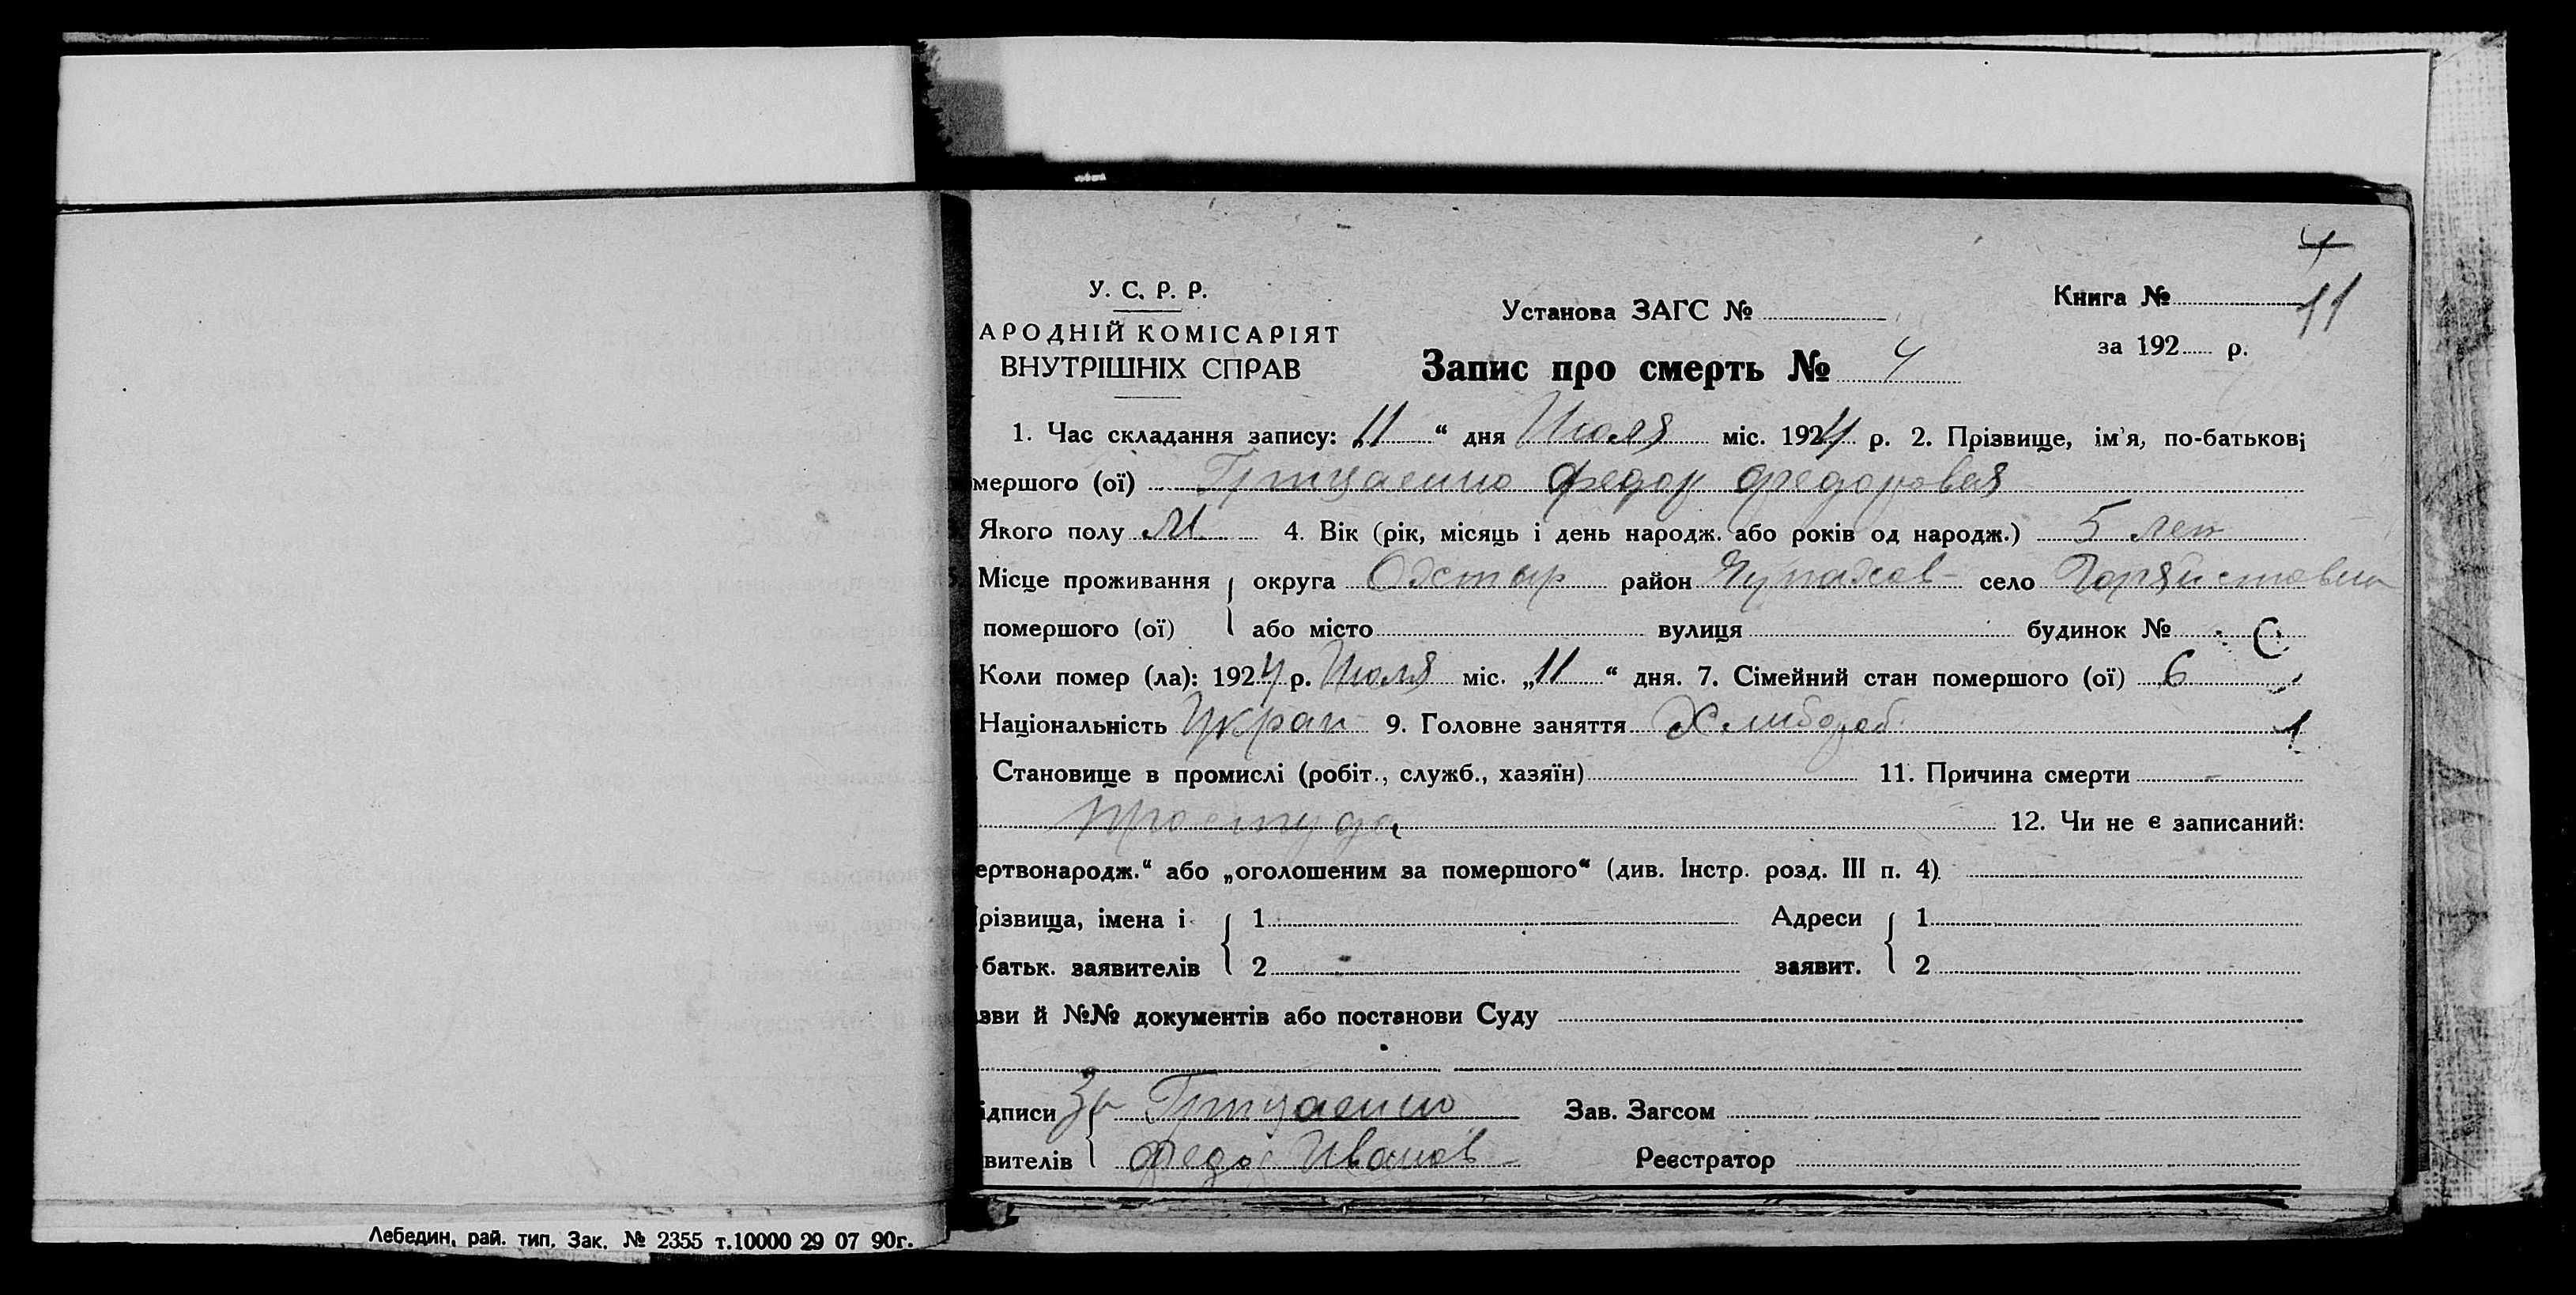 4
У. С. Р. Р.
АРОДНІЙ КОМІСАРІЯТ
ВНУТРІШНІХ СПРАВ
Установа ЗАГС №
Книга №
11
за 192 р.
Запис про смерть № 4
1. Час складання запису: „11“ дня Июля міс. 1924 р. 2. Прізвище, ім'я, по-батькові
мершого (ої) Грицаенко Федор Федоровая
Якого полу М. 4. Вік (рік, місяць і день народж. або років од народж.) 5 лет
Місце проживання округа Охстыр район Чупахов- село
помершого (ої) або місто вулиця будинок №
Коли помер (ла): 1924 р. Июля міс. „11“ дня. 7. Сімейний стан помершого (ої) 6
Національність Украи 9. Головне заняття Хлибороб 1
Становище в промислі (робіт., служб., хазяїн) 11. Причина смерти -
простуда 12. Чи не є записаний:
ертвонародж.“ або „оголошеним за помершого“ (див. Інстр. розд. III п. 4)
різвища, імена і 1 Адреси 1
батьк. заявителів 2 заявит. 2
зви й №№ документів або постанови Суду
ідписи За Грицаенко Зав. Загсом
вителів Федос Иванов- Реєстратор
Лебедин, рай. тип. Зак. № 2355 т.10000 29 07 90г.